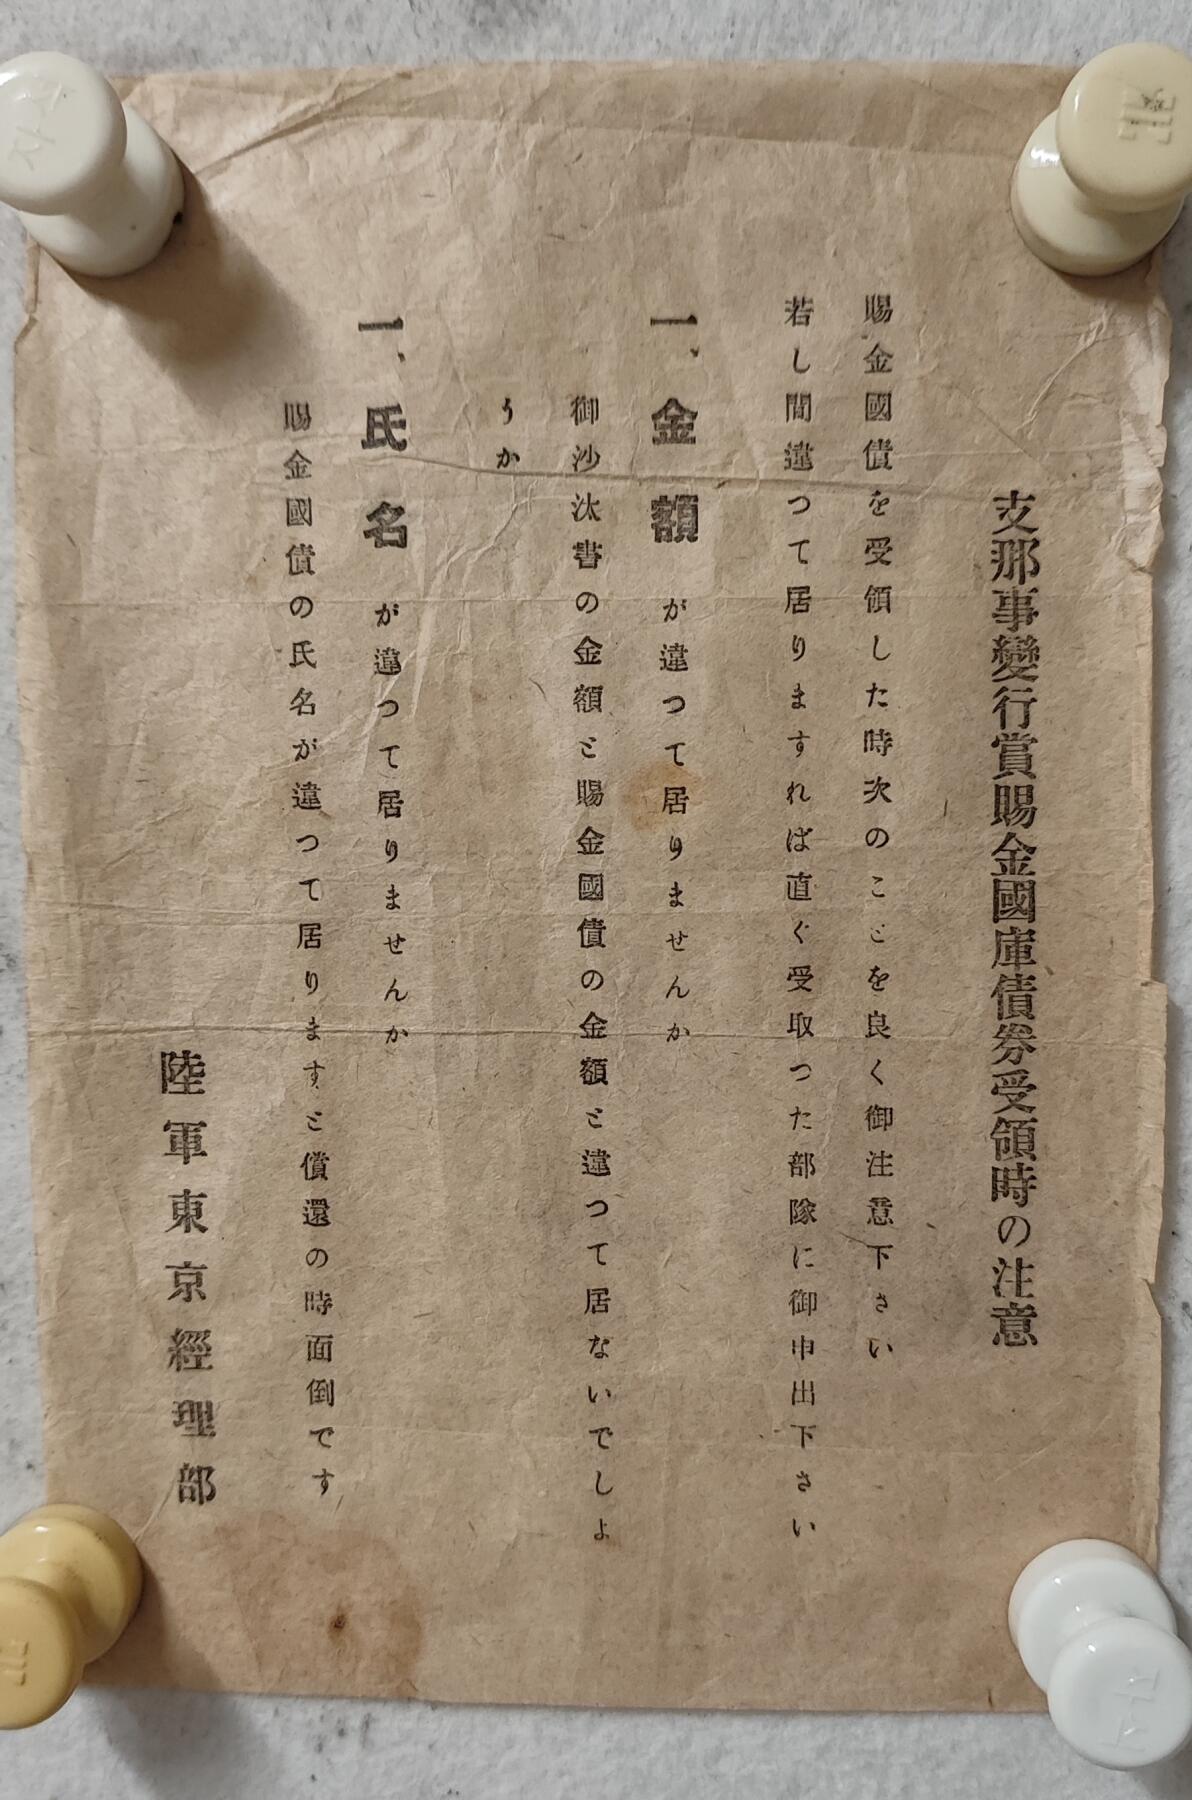 支那事變行賞賜金國庫債券受領時の注意
賜金國債を受領した時次のことを良く御注意下さい
若し間違つて居りますれば直ぐ受取つた部隊に御申出下さい
一、金額が違つて居りませんか
御沙汰書の金額と賜金國債の金額と違つて居ないでしよ
うか
一、氏名が違つて居りませんか
賜金國債の氏名が違つて居りますと償還の時面倒です
陸軍東京經理部